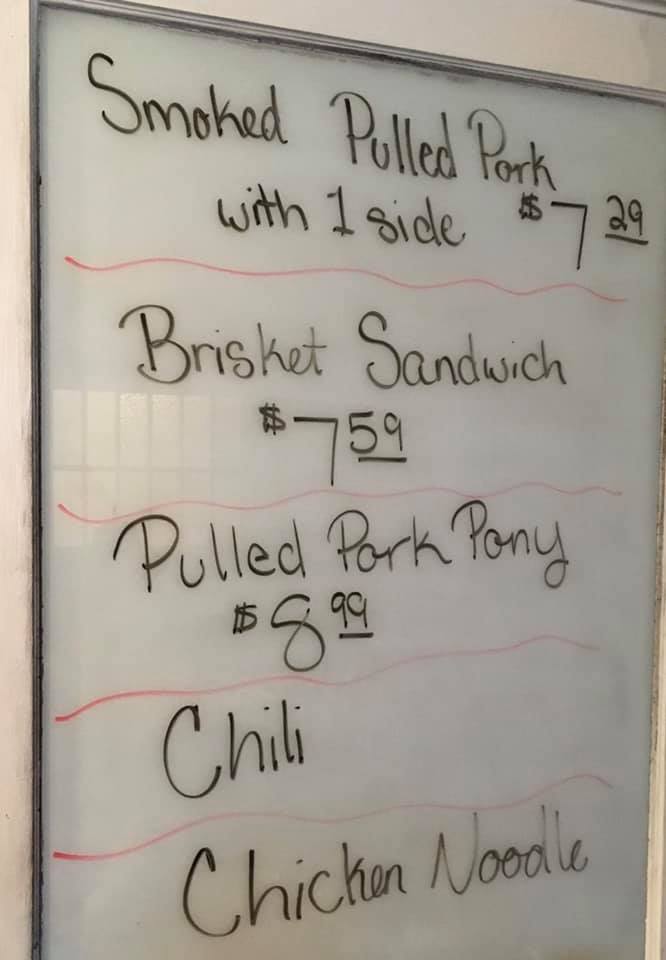 Smoked Pulled Pork
with 1 side $7 29
Brisket Sandwich
$7 59
Pulled Pork Pony
$8 99
Chili
Chicken Noodle